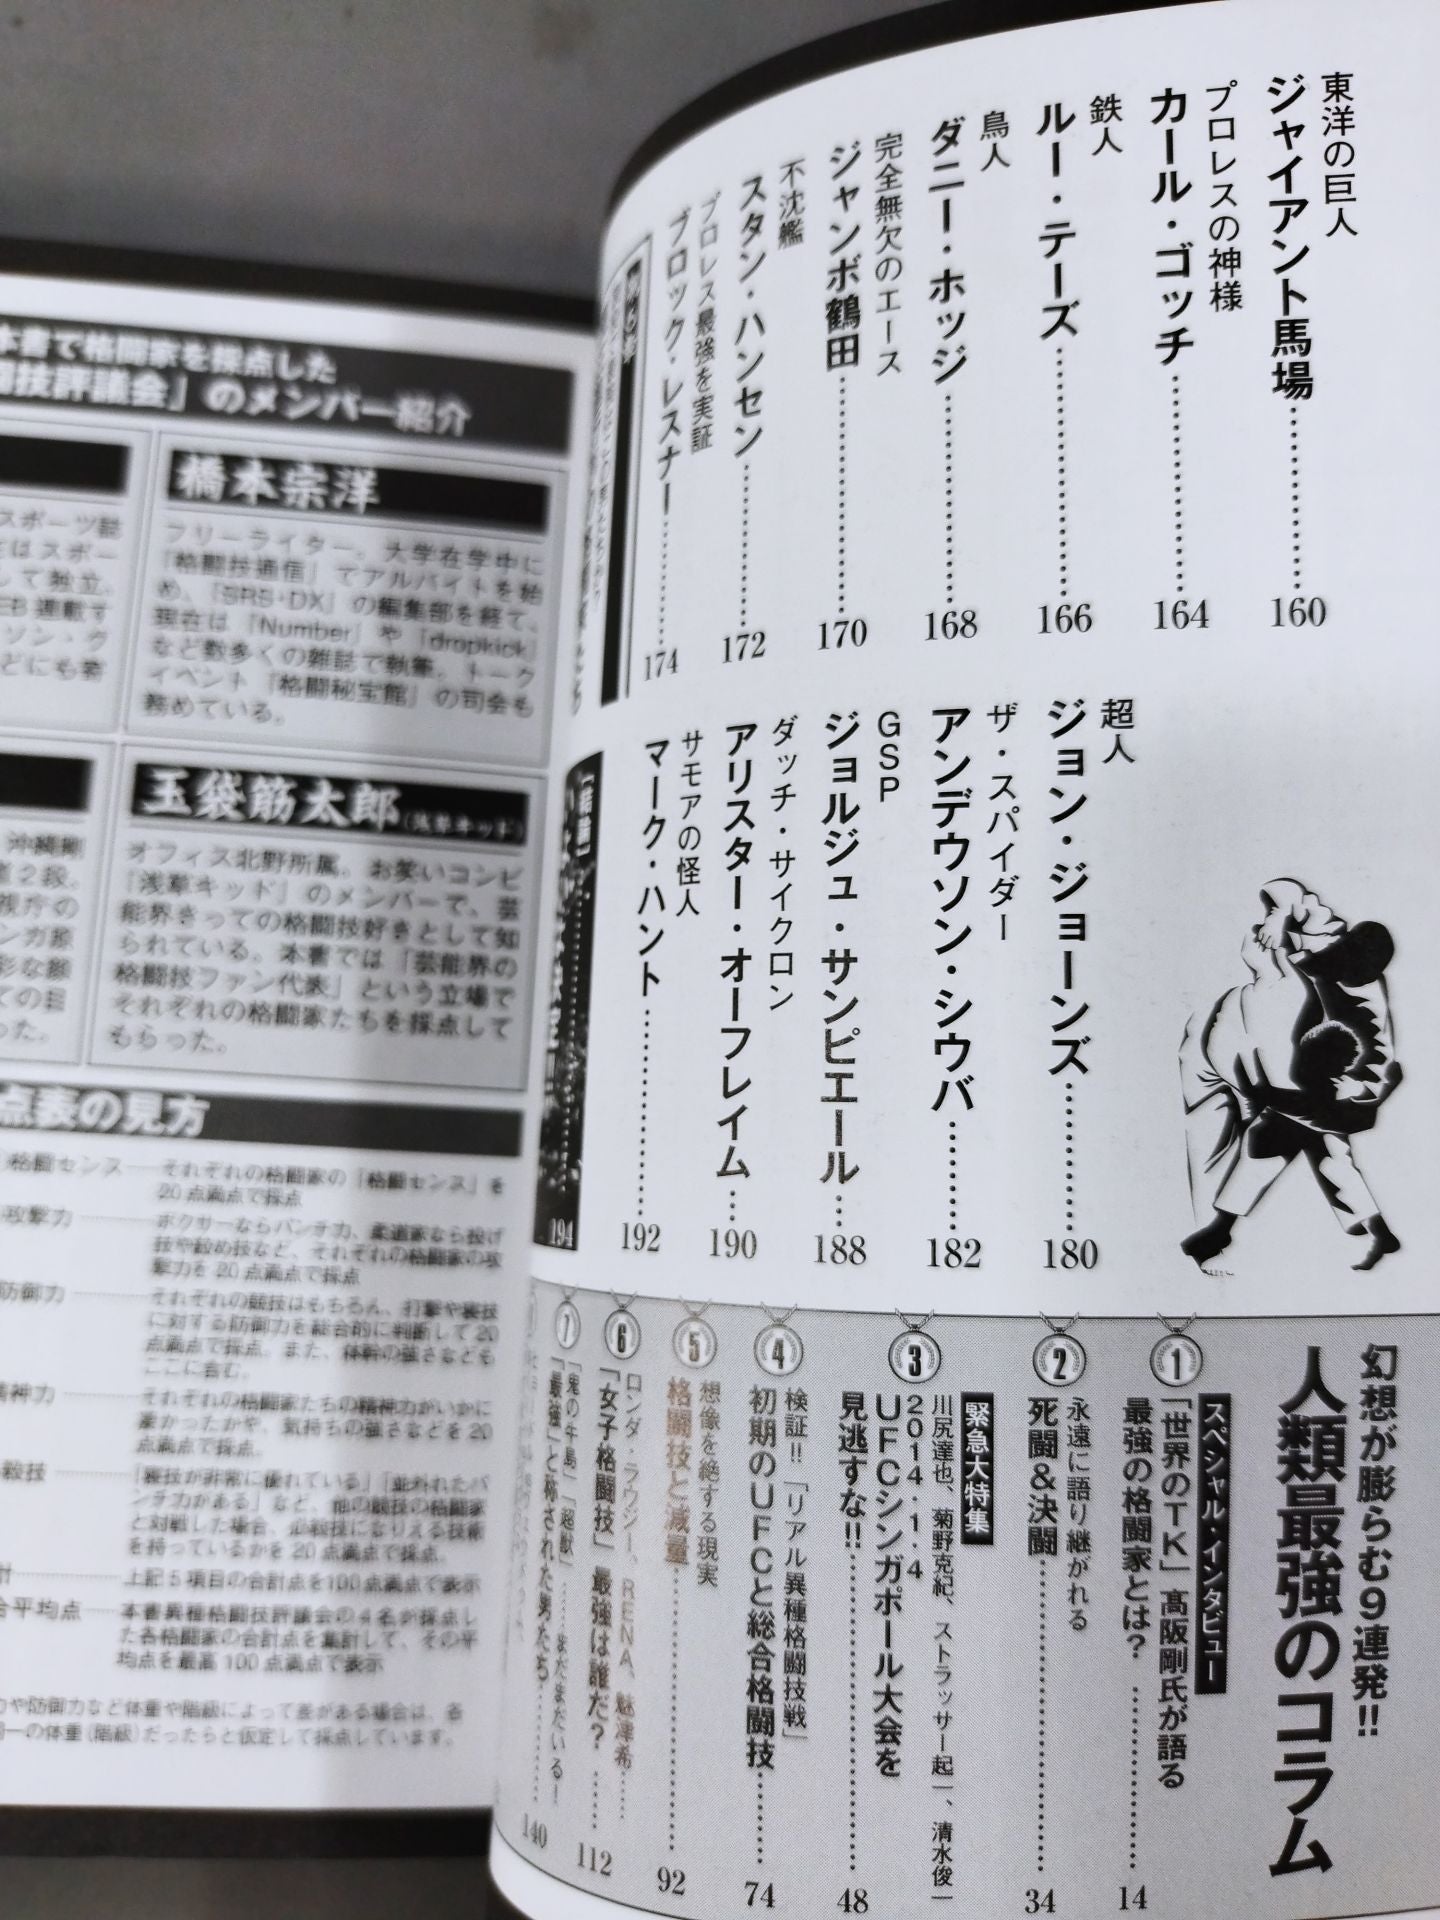 東洋の巨人
ジャイアント馬場……160
プロレスの神様
カール・ゴッチ……164
鉄人
ルー・テーズ……166
鳥人
ダニー・ホッジ……168
完全無欠のエース
ジャンボ鶴田……170
不沈艦
スタン・ハンセン……172
プロレス最強を実証
ブロック・レスナー……174
超人
ジョン・ジョーンズ……180
ザ・スパイダー
アンデウソン・シウバ……182
GSP
ジョルジュ・サンピエール……188
ダッチ・サイクロン
アリスター・オーフレイム…190
サモアの怪人
マーク・ハント……192
194
幻想が膨らむ9連発!!
人類最強のコラム
スペシャル・インタビュー
1
「世界のTK」髙阪剛氏が語る
最強の格闘家とは?……14
2
永遠に語り継がれる
死闘&決闘……34
緊急大特集
3
川尻達也、菊野克紀、ストラッサー起一、清水俊一
2014・1・4
UFCシンガポール大会を
見逃すな!!……48
4
検証!!「リアル異種格闘技戦」
初期のUFCと総合格闘技……74
5
想像を絶する現実
格闘技と減量……92
6
ロンダ・ラウジー、RENA、魅津希……
「女子格闘技」最強は誰だ?……112
7
「鬼の牛島」「超獣」……まだまだいる!
「最強」と称された男たち……140
本書で格闘家を採点した
闘技評議会」のメンバー紹介
橋本宗洋
フリーライター。大学在学中に
『格闘技通信』でアルバイトを始
め、『SRS・DX』の編集部を経て、
現在は『Number』や『dropkick』
など数多くの雑誌で執筆。トーク
イベント『格闘秘宝館』の司会も
務めている。
玉袋筋太郎(浅草キッド)
オフィス北野所属。お笑いコンビ
『浅草キッド』のメンバーで、芸
能界きっての格闘技好きとして知
られている。本書では「芸能界の
格闘技ファン代表」という立場で
それぞれの格闘家たちを採点して
もらった。
点表の見方
格闘センス……それぞれの格闘家の「格闘センス」を
20点満点で採点
攻撃力……ボクサーならパンチ力、柔道家なら投げ
技や絞め技など、それぞれの格闘家の攻
撃力を20点満点で採点
防御力……それぞれの競技はもちろん、打撃や寝技
に対する防御力を総合的に判断して20
点満点で採点。また、体幹の強さなども
ここに含む。
精神力……それぞれの格闘家たちの精神力がいかに
豪かったかや、気持ちの強さなどを20
点満点で採点。
殺技……「寝技が非常に優れている」「並外れたパ
ンチ力がある」など、他の競技の格闘家
と対戦した場合、必殺技になりえる技術
を持っているかを20点満点で採点。
計……上記5項目の合計点を100点満点で表示
合平均点……本書異種格闘技評議会の4名が採点し
た各格闘家の合計点を集計して、その平
均点を最高100点満点で表示
力や防御力など体重や階級によって差がある場合は、各
同一の体重(階級)だったらと仮定して採点しています。